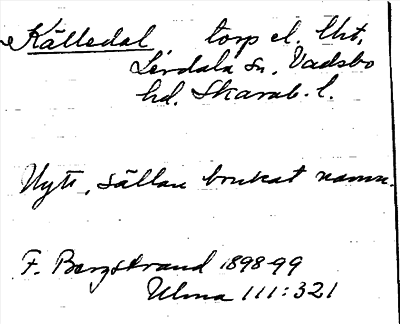 Källedal torp el. lht,
Lerdala sn, Vadsbo
hd. Skarab. l.
Nytt, sällan brukat namn.
F. Bergstrand 1898-99
Ulma 111:321